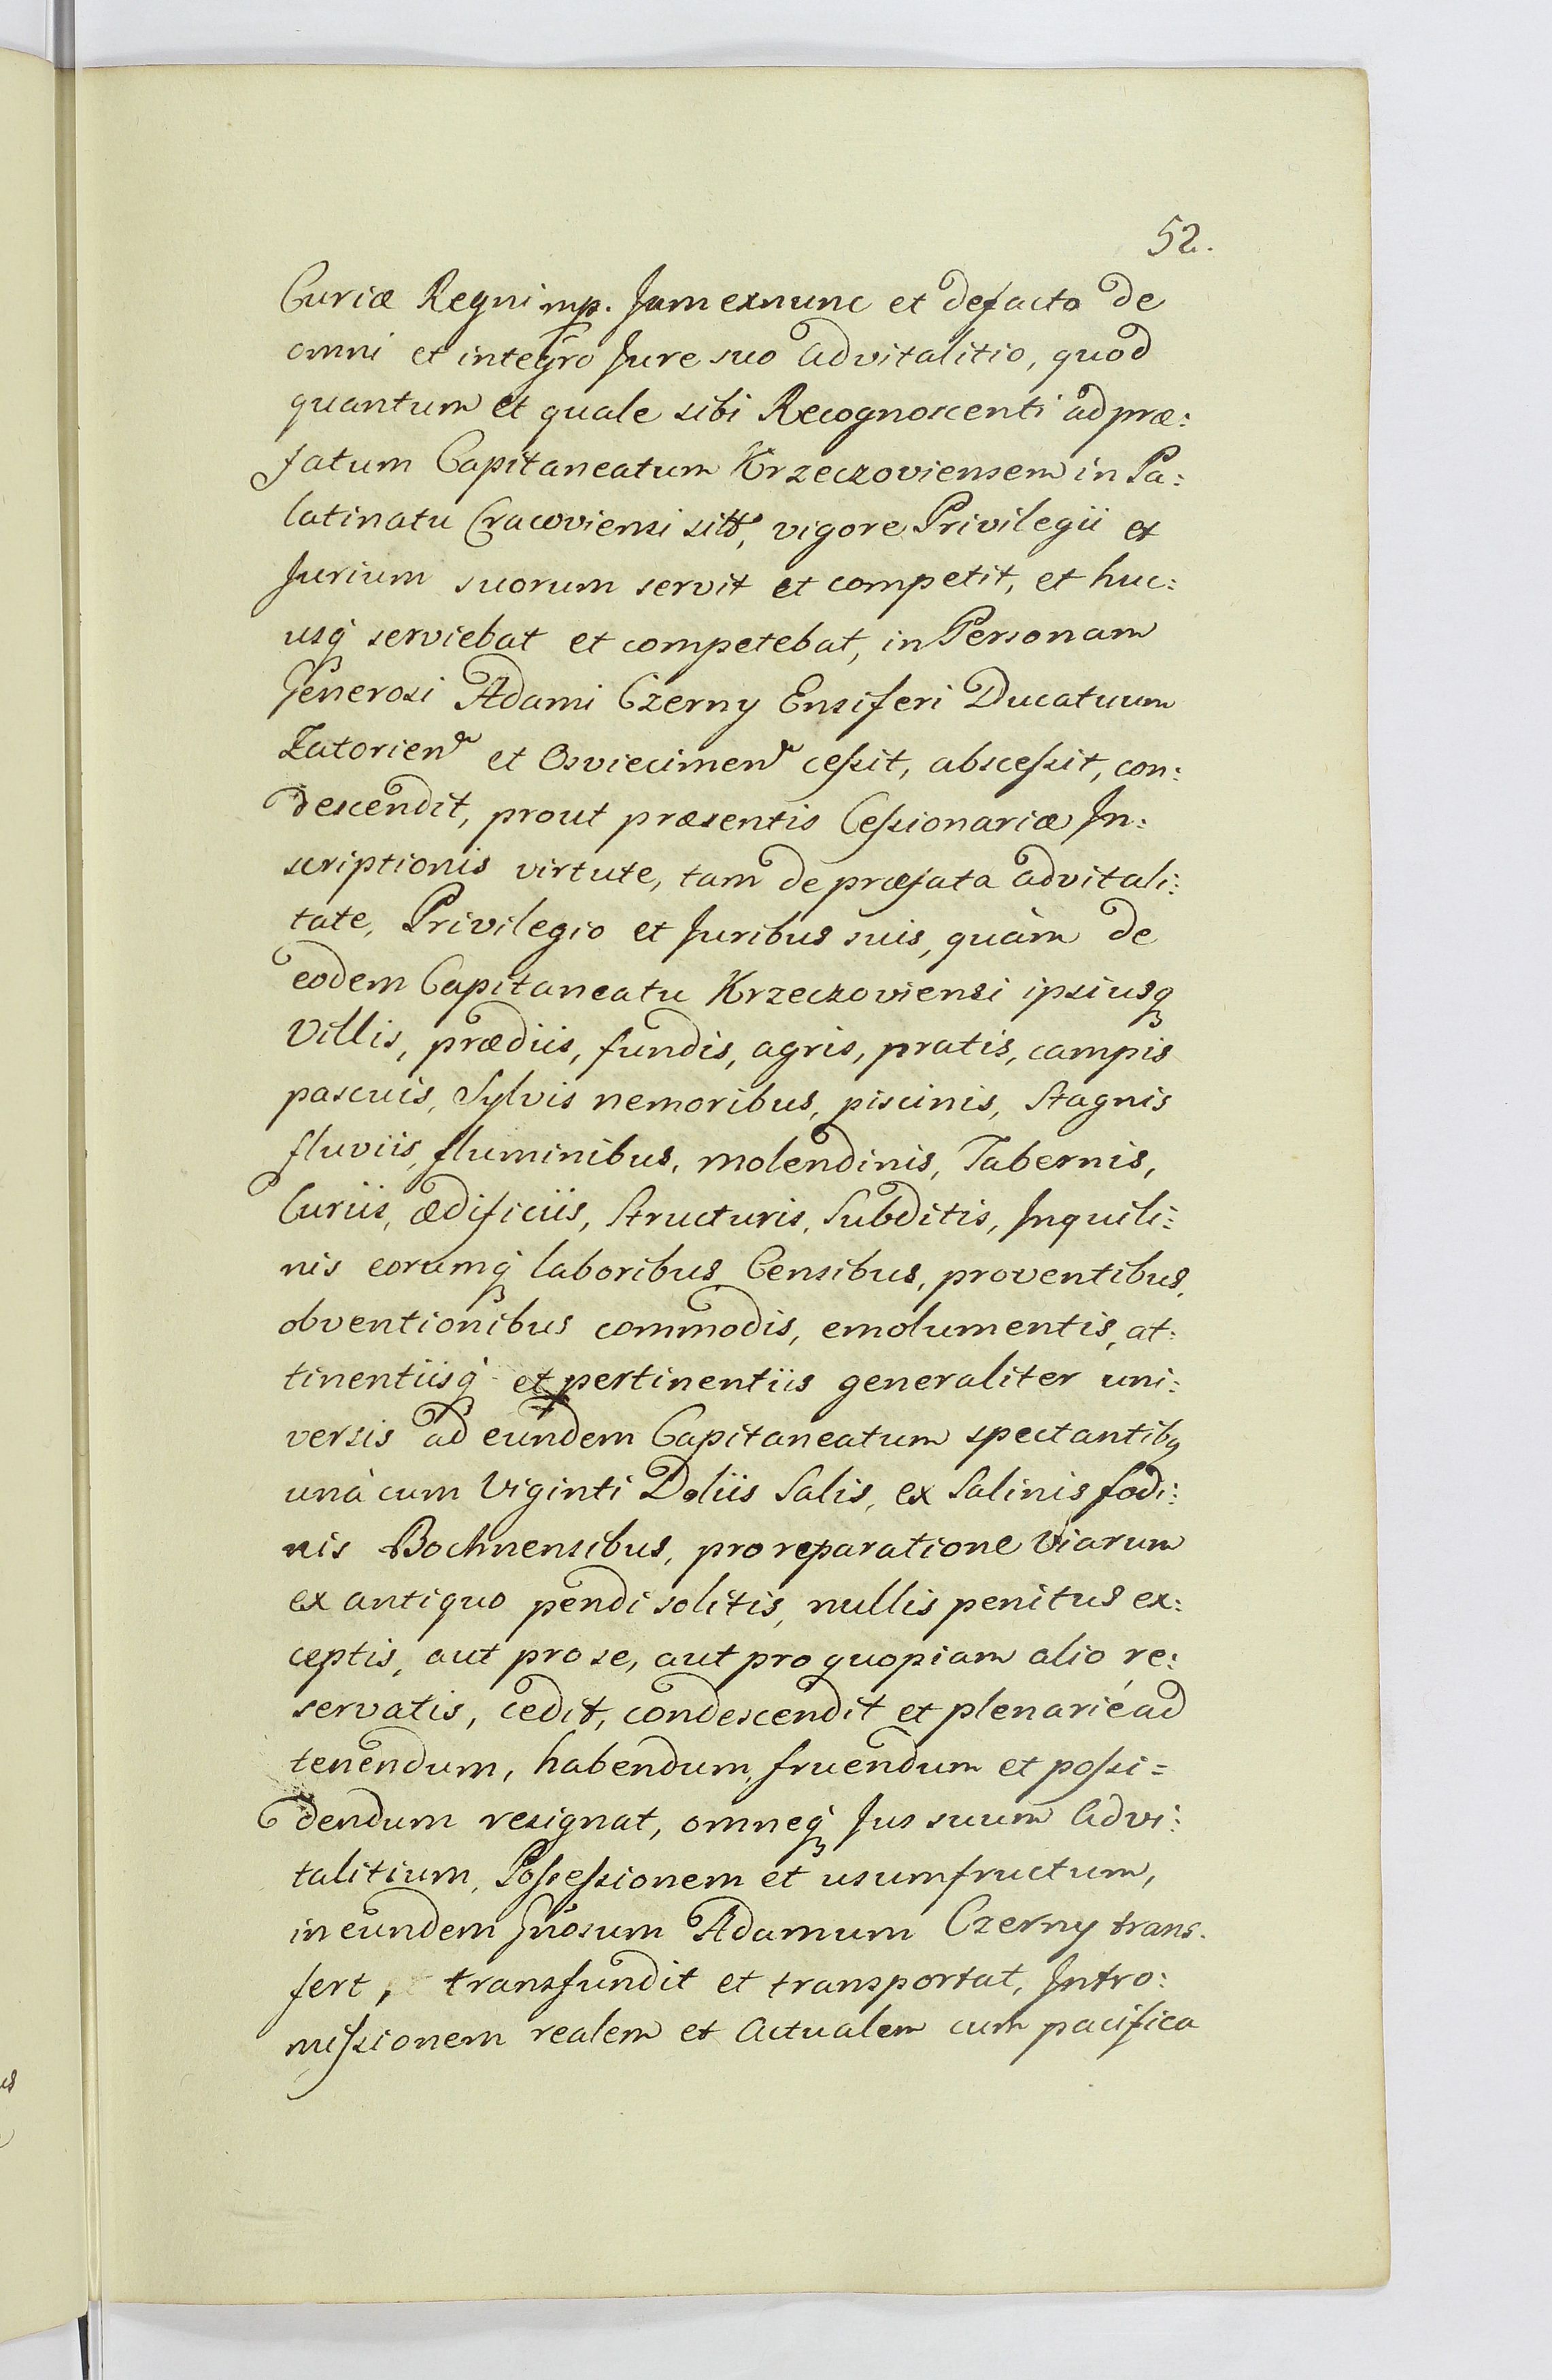 52.
Curiæ Regni mp. Jam exnunc et defacto de
omni et integro Jure suo advitalitio, quod
quantum et quale sibi Recognoscenti ad præ:
fatum Capitaneatum Krzeczoviensem in Pa:
latinatu Cracoviensi sitt, vigore Privilegii et
Jurium suorum servit et competit, et huc:
usq serviebat et competebat, in Personam
Generosi Adami Czerny Ensiferi Ducatuum
Zatorien et Osviecimen ceſsit, absceſsit, con:
descendit, prout præsentis Ceſsionariæ In:
scriptionis virtute, tam de præfata advitali:
tate, Privilegio et Juribus suis, quàm de
eodem Capitaneatu Krzeczoviensi ipsiusq
Villis, prædiis, fundis, agris, pratis, campis
pascuis, Sylvis nemoribus, piscinis, Stagnis
fluviis, fluminibus, molendinis, Tabernis,
Curiis, ædificiis, Structuris, Subditis, Inquili:
nis eorumq laboribus Censibus, proventibus,
obventionibus commodis, emolumentis, at:
tinentiisq et pertinentiis generaliter uni:
versis ad eundem Capitaneatum spectantibq
unà cum Viginti Doliis Salis, ex Salinis fodi:
nis Bochnensibus, pro reparatione Viarum
ex antiquo pendi solitis, nullis penitus ex:
ceptis, aut pro se, aut pro quopiam alio re:
servatis, cedit, condescendit et plenarié ad
tenendum, habendum, fruendum et poſsi=
dendum resignat, omneq Jus suum advi:
talitium, Poſseſsionem et usumfructum,
in eundem Gnosum Adamum Czerny trans.
fert, transfundit et transportat, Intro:
miſsionem realem et Actualem cum pacifica